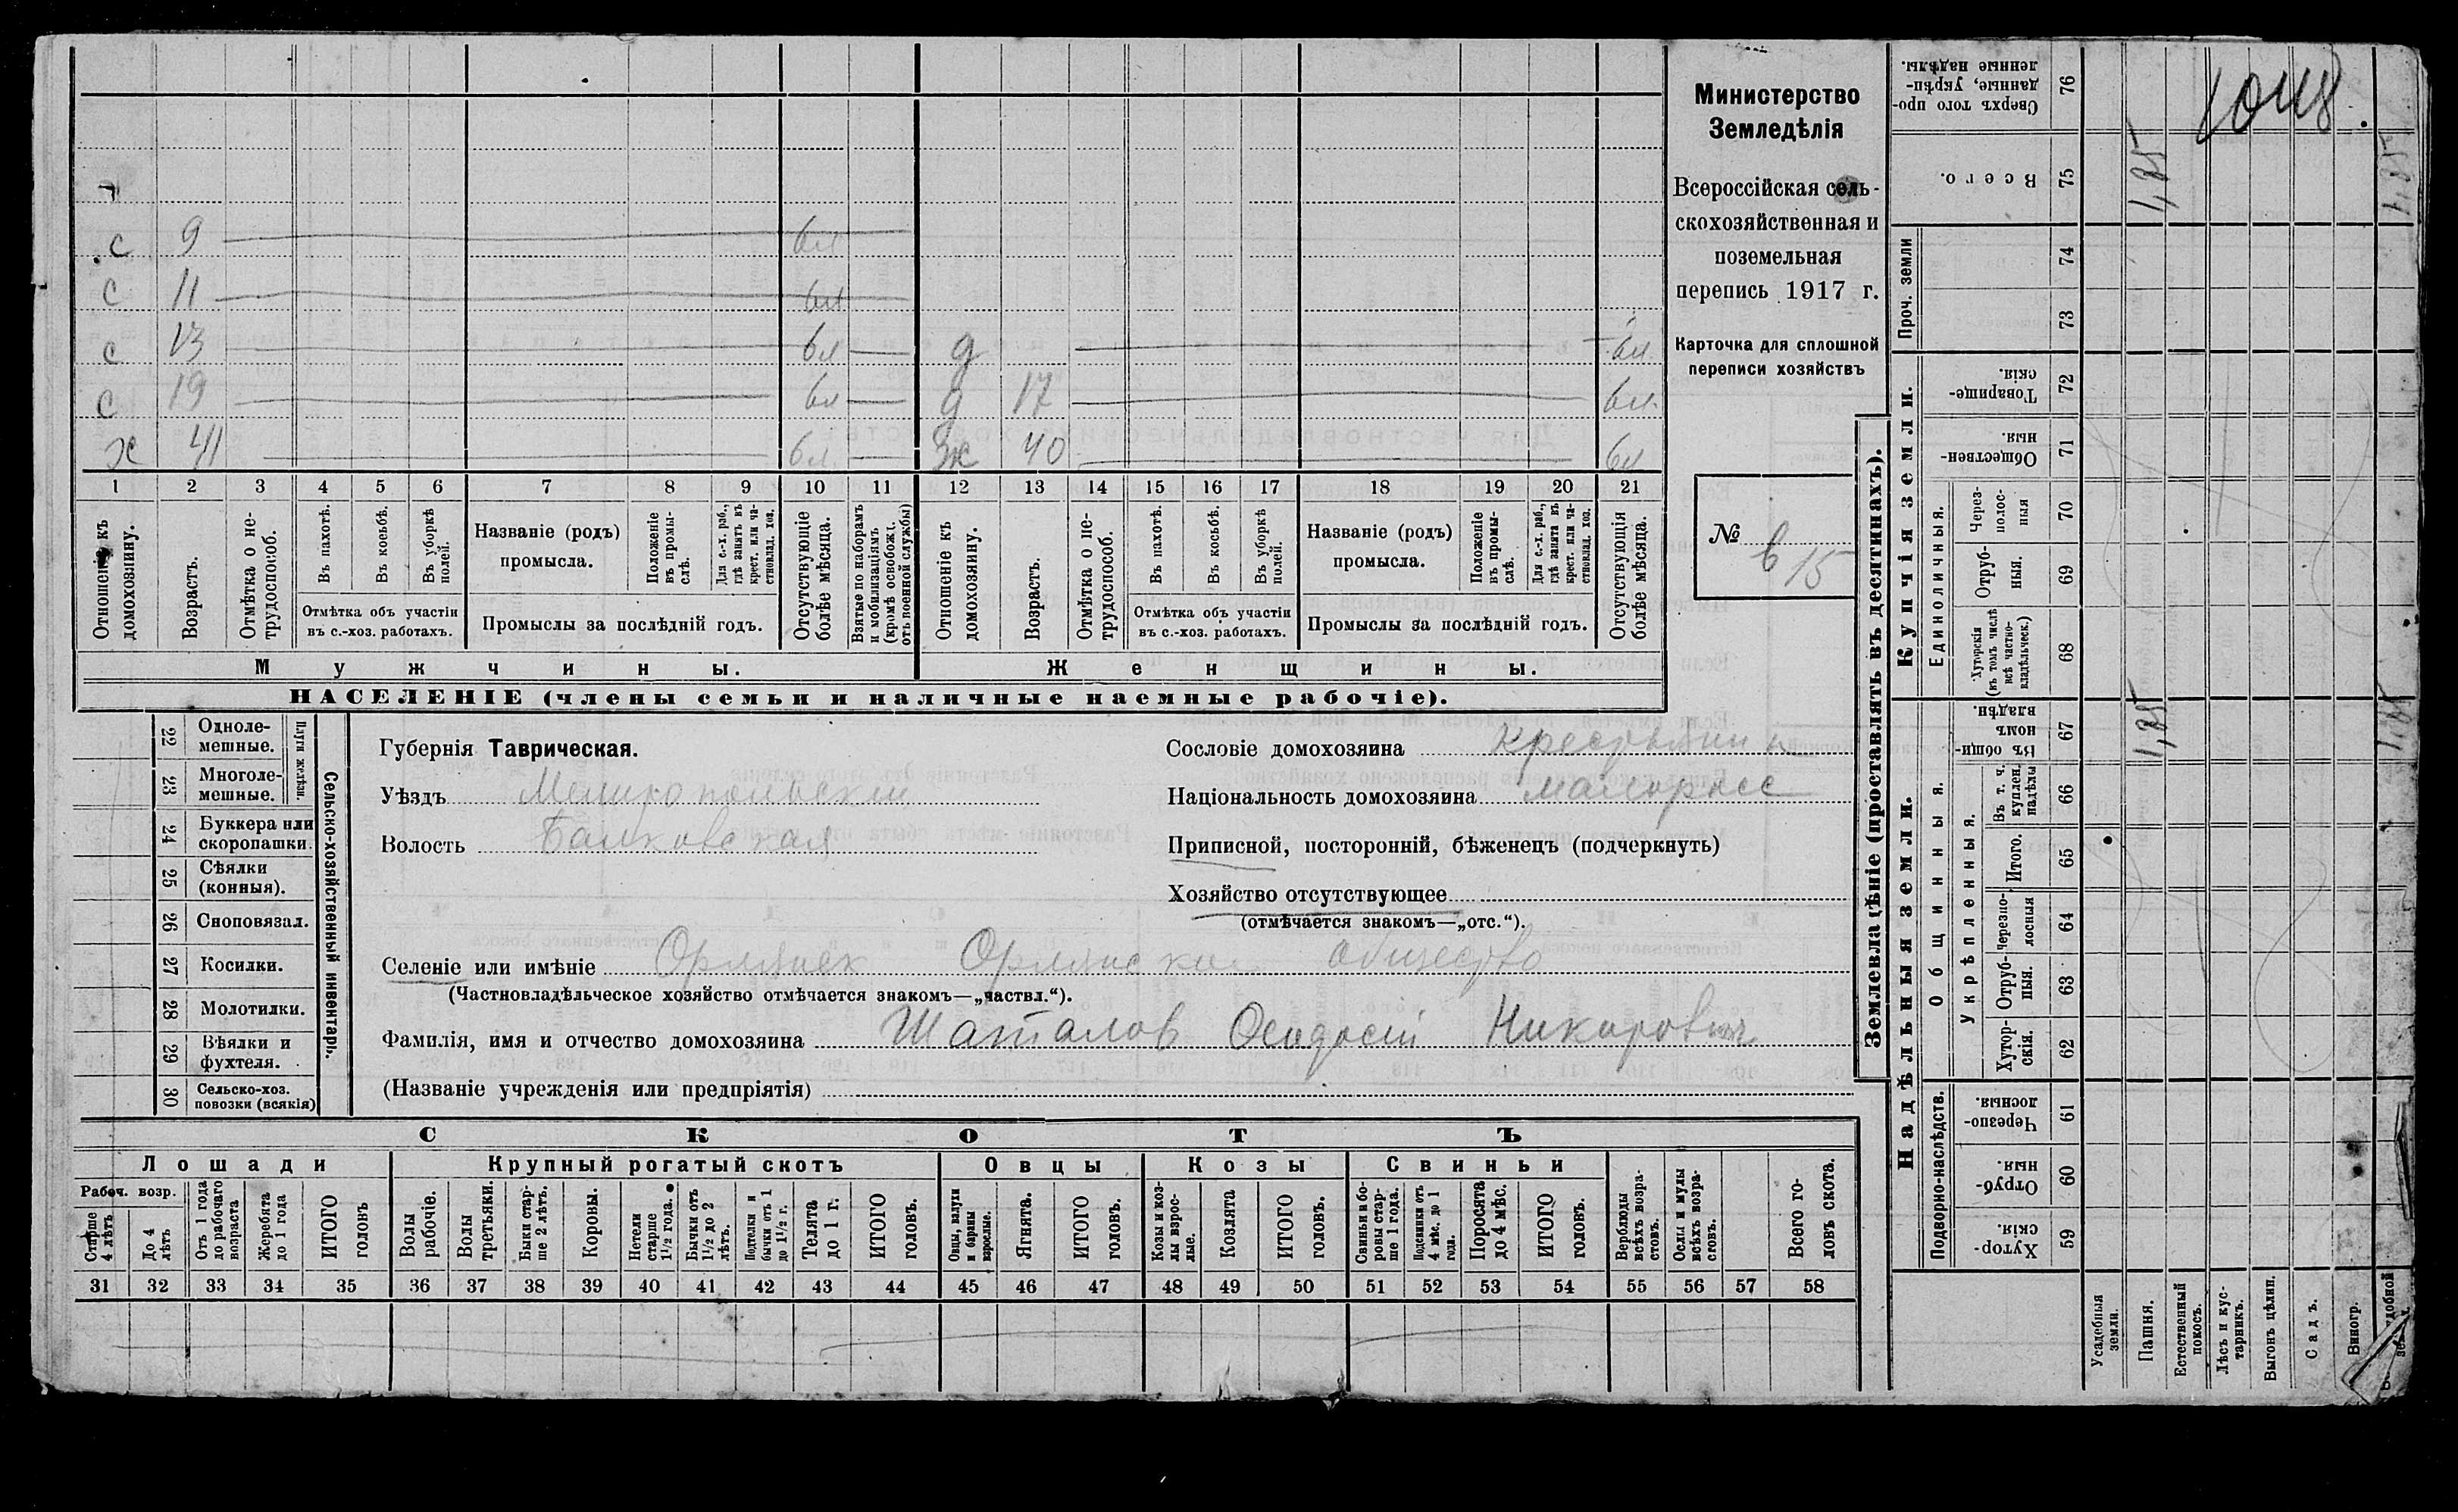 Министерство
Земледѣлія
Всероссійская сель-
скохозяйственная и
поземельная
перепись 1917 г.
Карточка для сплошной
переписи хозяйствъ
№ 615
с 9 бл
с 11 бл
с 13 бл д бл
с 19 бл д 17 бл
х 41 бл Жх 40 бл
1 2 3 4 5 6 7 8 9 10 11 12 13 14 15 16 17 18 19 20 21
Отношеніе къ домохозяину.
Возрастъ.
Отмѣтка о не-трудоспособ.
Въ пахотѣ.
Въ косьбѣ.
Въ уборкѣ полей.
Отмѣтка объ участіи
въ с.-хоз. работахъ.
Названіе (родъ)
промысла.
Положеніе въ промы-слѣ.
Для с.-х. раб., гдѣ занятъ въ крест. или ча-стновлад. хоз.
Промыслы за послѣдній годъ.
Отсутствующіе болѣе мѣсяца.
Взятые по наборамъ и мобилизаціямъ (кромѣ освобожд. отъ военной службы)
Отношеніе къ домохозяину.
Возрастъ.
Отмѣтка о не-трудоспособ.
Въ пахотѣ.
Въ косьбѣ.
Въ уборкѣ полей.
Отмѣтка объ участіи
въ с.-хоз. работахъ.
Названіе (родъ)
промысла.
Положеніе въ промы-слѣ.
Для с.-х. раб., гдѣ занята въ крест. или ча-стновлад. хоз.
Промыслы за послѣдній годъ.
Отсутствующія болѣе мѣсяца.
Мужчины.
Женщины.
НАСЕЛЕНІЕ (члены семьи и наличные наемные рабочіе).
Сельско-хозяйственный инвентарь.
Плуги желѣзн.
22 Одноле-мешные.
23 Многоле-мешные.
24 Буккера или скоропашки.
25 Сѣялки (конныя).
26 Сноповязал.
27 Косилки.
28 Молотилки.
29 Вѣялки и фухтеля.
30 Сельско-хоз. повозки (всякія)
Губернія Таврическая.
Уѣздъ Мелитопольскій
Волость Балковская
Сословіе домохозяина крестьянин
Національность домохозяина малорос
Приписной, посторонній, бѣженецъ (подчеркнуть)
Хозяйство отсутствующее
(отмѣчается знакомъ—„отс.“).
Селеніе или имѣніе Орлянск Орлянское общество
(Частновладѣльческое хозяйство отмѣчается знакомъ—„частвл.“).
Фамилія, имя и отчество домохозяина Шаталов Феодосій Никорович
(Названіе учрежденія или предпріятія)
СКОТЪ
Лошади
Крупный рогатый скотъ
Овцы
Козы
Свиньи
Рабоч. возр.
Старше 4 лѣтъ
До 4 лѣтъ
Отъ 1 года до рабочаго возраста
Жеребята до 1 года
ИТОГО головъ
Волы рабочіе.
Волы третьяки.
Быки стар-ше 2 лѣтъ.
Коровы.
Нетели старше 1½ года.
Бычки отъ 1½ до 2 лѣтъ.
Подтелки и бычки отъ 1 до 1½ г.
Телята до 1 г.
ИТОГО головъ.
Овцы, валухи и бараны взрослые.
Ягнята.
ИТОГО головъ.
Козы и коз-лы взрос-лые.
Козлята
ИТОГО головъ.
Свиньи и бо-ровы стар-ше 1 года.
Подсвинки отъ 4 мѣс. до 1 года.
Поросята до 4 мѣс.
ИТОГО головъ.
Верблюды всѣхъ возра-стовъ.
Ослы и мулы всѣхъ возра-стовъ.
Всего го-ловъ скота.
31 32 33 34 35 36 37 38 39 40 41 42 43 44 45 46 47 48 49 50 51 52 53 54 55 56 57 58
Землевладѣніе (проставлять въ десятинахъ).
Сверхъ того про-данные, укрѣп-ленные надѣлы. 76
Всего. 75 1,85 1,85
Проч. земли 74 73
Купчія земли.
Товарище-скія. 72
Обществен-ныя. 71
Единоличныя.
Через-полос-ныя 70
Отруб-ныя. 69
Хуторскія (въ томъ числѣ всѣ частно-владѣльческ.) 68
Надѣльныя земли.
Общинныя.
Въ общи-номъ владѣн. 67 1,85 1,85
Укрѣпленныя.
Въ т. ч. куплен. надѣлы 66
Итого. 65
Черезпо-лосныя 64
Отруб-ныя. 63
Хутор-скія. 62
Подворно-наслѣдств.
Черезпо-лосныя. 61
Отруб-ныя. 60
Хутор-скія. 59
Усадебныя земли.
Пашня.
Естественный покосъ.
Лѣсъ и кус-тарникъ.
Выгонъ цѣлин.
Садъ.
Виногр.